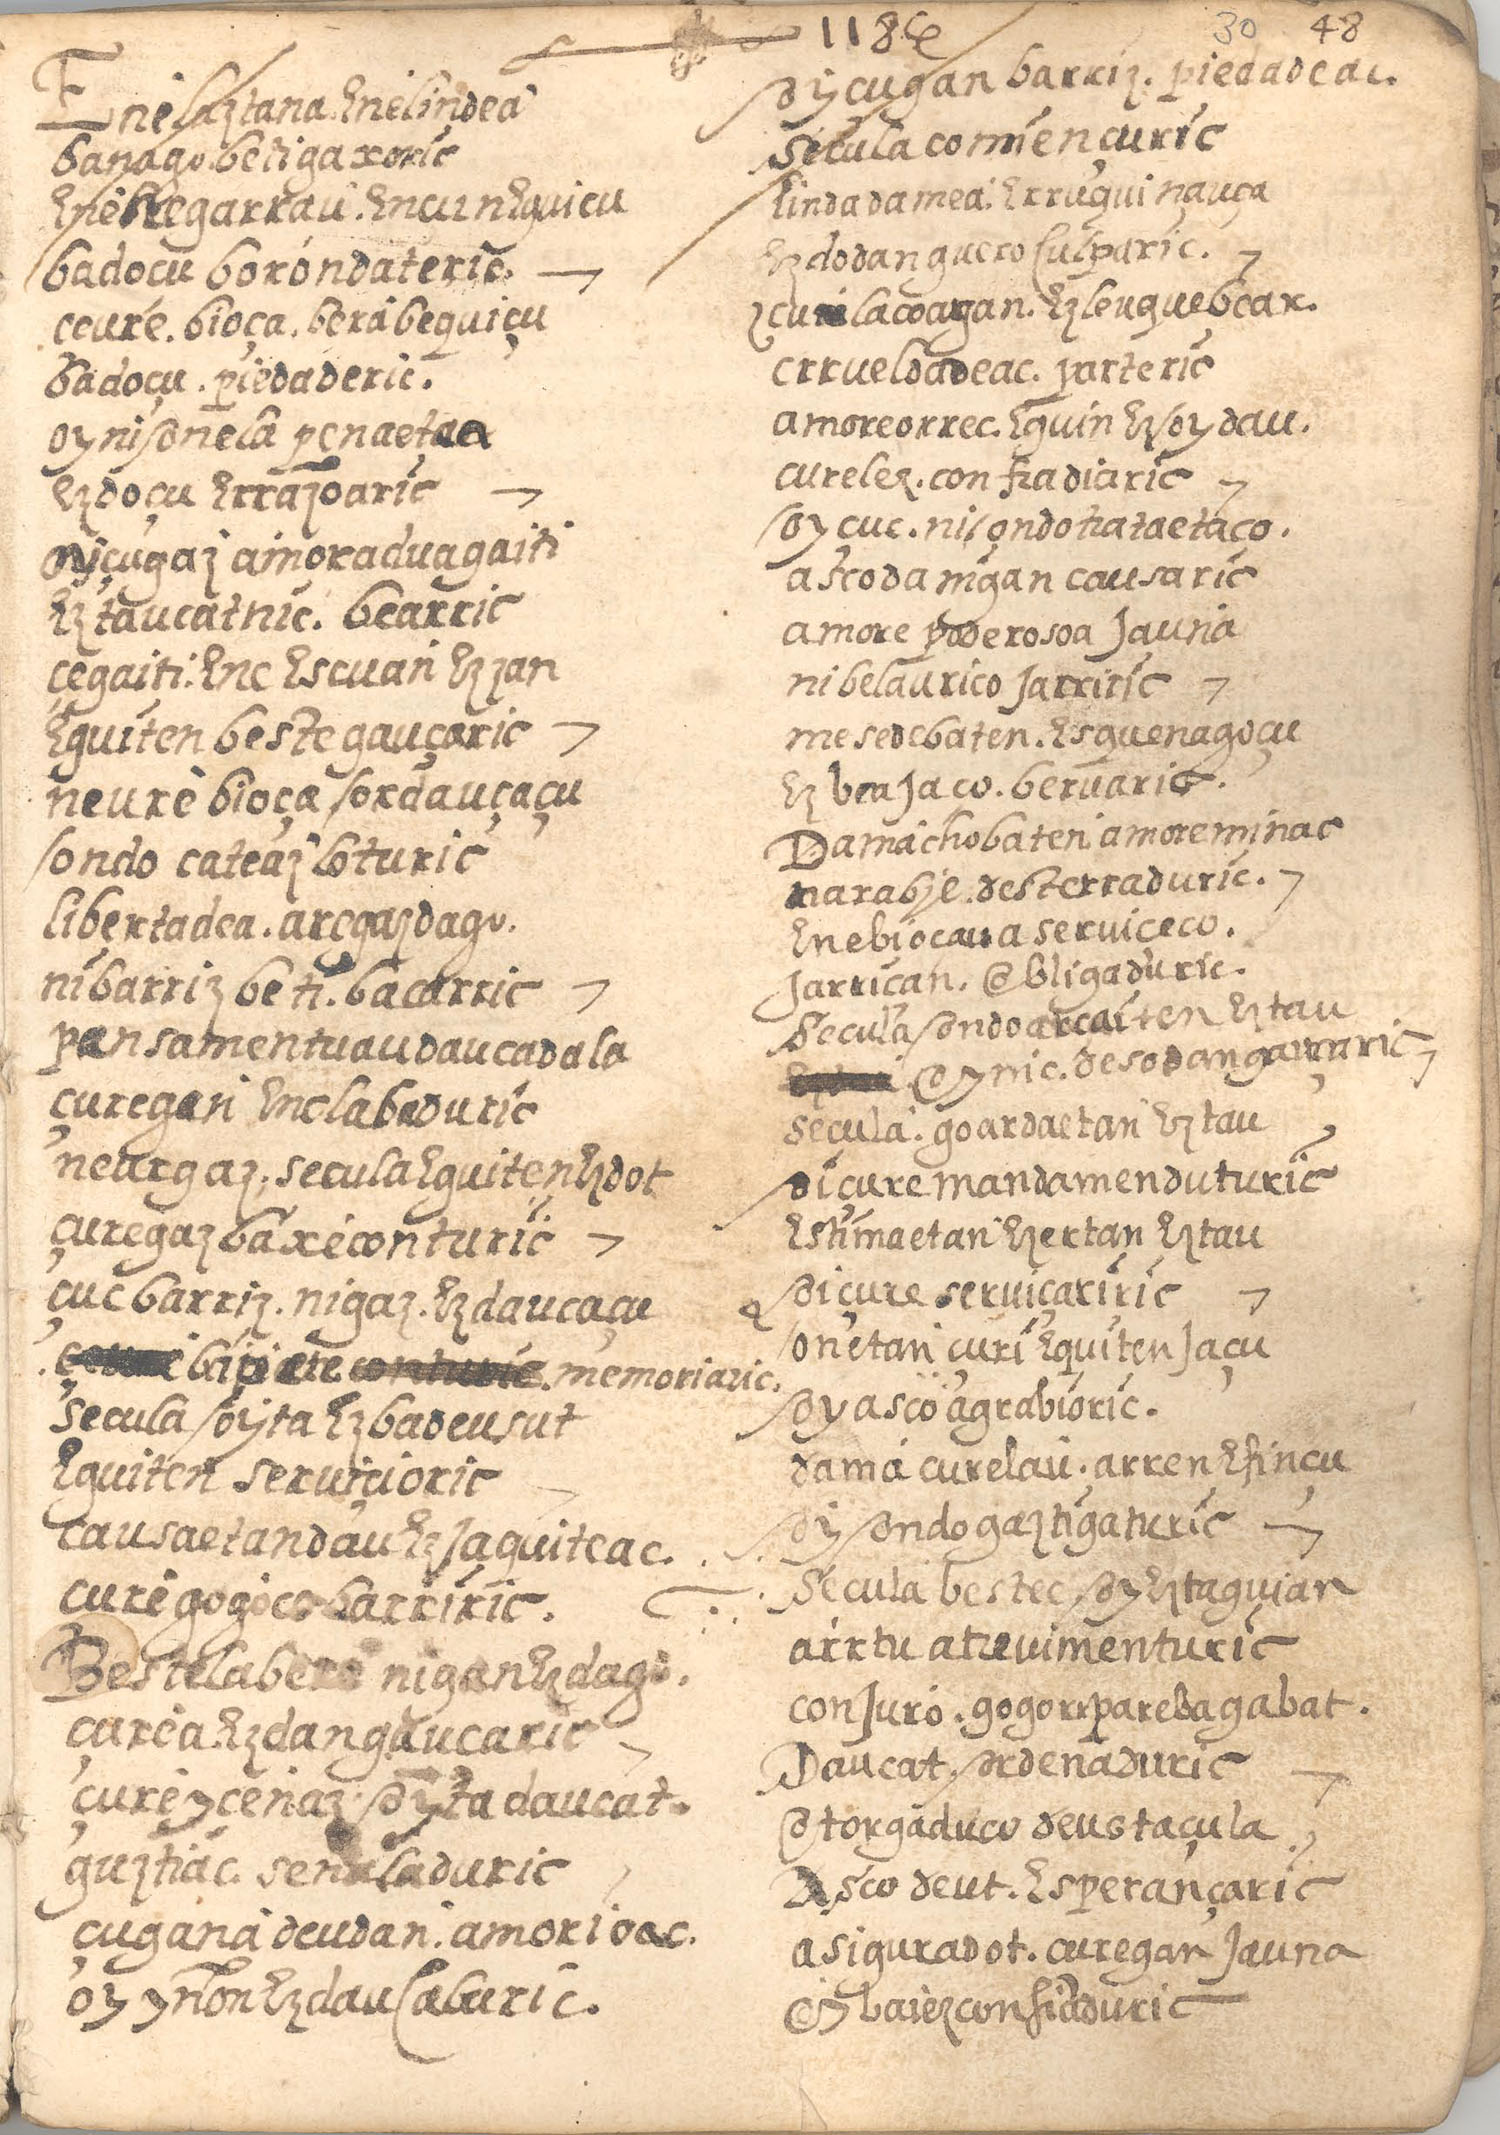 118
30 48
Ene laztana. Ene lindea
banago. beti gaxoric
Ene negarrau. Encun Eguicu
badoçu borondateric.
ceure. bioça. bera beguiçu
badoçu. piedaderic.
oy ni sonela penaetaa
Ez doçu Errazoaric
oy çugaz amoradua gaiti
Ez taucat nic. bearric
çegaiti. Ene Escuan Ezzan
Eguiten beste gauçaric
neure bioça sor dauçaçu
sondo cateaz loturic
libertadea. aregaz dago.
ni barriz beti. bacarric
pansamentuau daucadala
çuregan Enclabaduric
neurgaz. secula Eguiten Ez dot
çuregaz baxe conturic
çuc barriz. nigaz. Ez daucaçu
memoriaric.
secula soyta Ez badeusut
Eguiten seruicioric
causaetan dau Ez Jaquiteac.
cure gogoco barriric.
Bestela bere nigan Ez dago.
çurea. Ez dan gaucaric
çure yçenaz. soyta daucat.
guztiac. senaladuric
çugana deudan. amorioac.
oy ynon Ez dau caburic.
oy çugan barriz. piedadeac.
secula comiençuric
linda damea. Errugui nauça
Ez dodan guero culparic.
Ez leuque bear.
crrueldadeac. parteric
amoreorrec. Eguin Ez oy dau.
curelez. confiadiaric
oy cuc. ni sondo trataetaco.
asco da nigan causaric
amore poderosoa Jauna
ni belaurico Jarriric
mesede baten. Esque nagoçu
Ez bea Jaco. beruaric.
Damacho baten amore minac
narabje. desterraduric.
Ene bioçau a seruiceco.
Jarrican. obligaduric.
Secula sondo arcaiten Ez tau
oynic. deso dan gauçaric
secula. goardaetan Ez tau
oi çure mandamenduturic
Estimaetan Ezertan Ez tau
oi çure seruiçariric
onetan curi Eguiten Jaçu
oy asco agrabioric.
dama curelau. arren Efinçu
oy ondo gaztigaturic
Secula bestec oy Ez taguian
arrtu atreuimenturic
conJuro. gogorrpareda gabat.
Daucat. ordenaduric
otorgaduco deustaçula
Asco deut. Esperançaric
asiguradot. curegan Jauna
oy baiez confiaduric